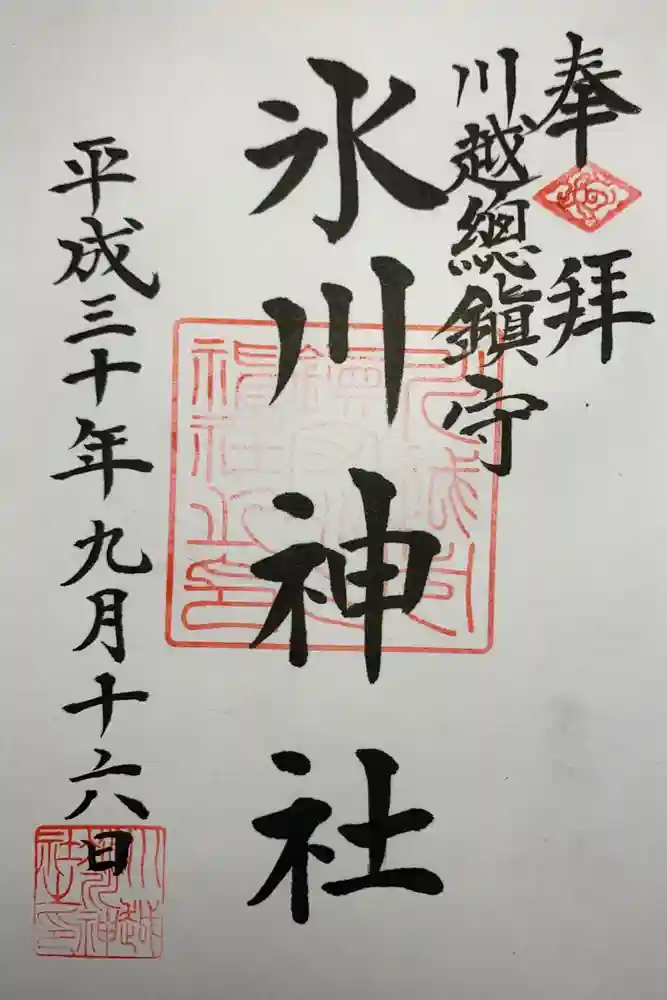 奉拝
川越總鎮守
氷川神社
平成三十年九月十六日